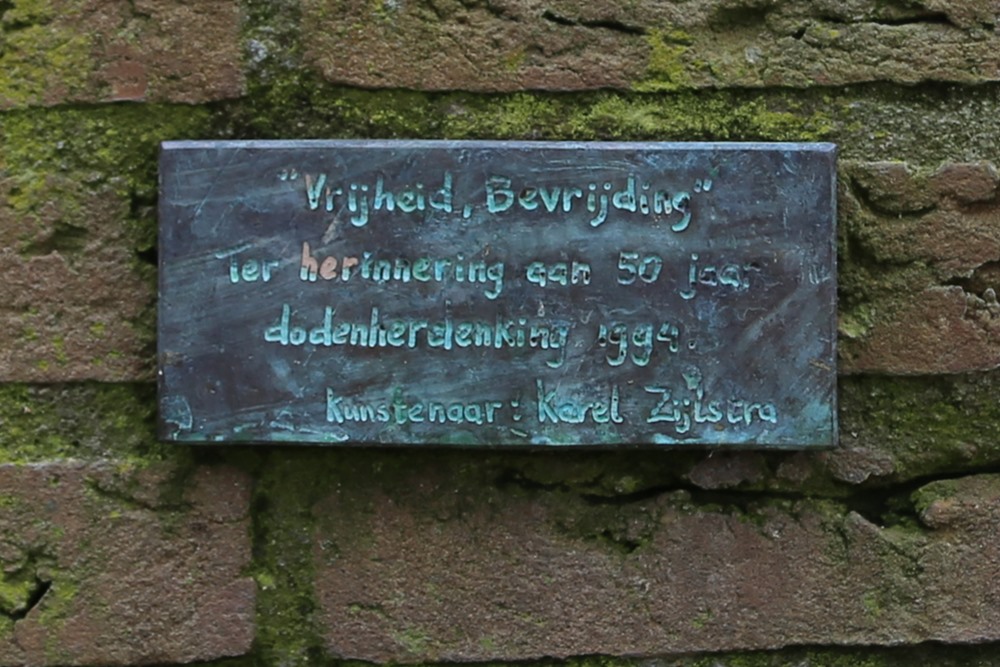 "Vrijheid, Bevrijding"
Ter herinnering aan 50 jaar
dodenherdenking 1994.
Kunstenaar: Karel Zijlstra